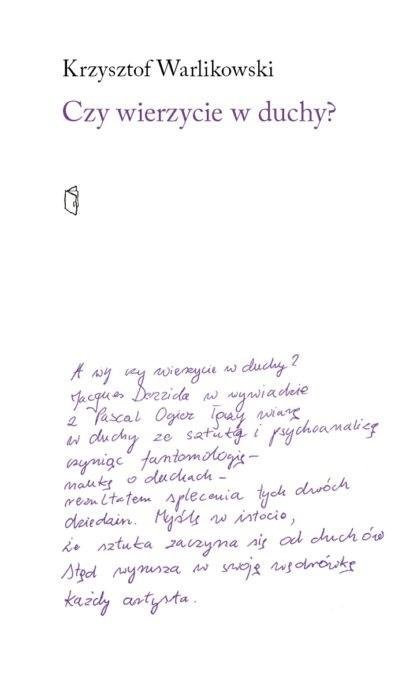 Krzysztof Warlikowski
Czy wierzycie w duchy?
A wy czy wierzycie w duchy?
Jacques Derrida w wywiadzie
z Pascal Ogier łączy wiarę
w duchy ze sztuką i psychoanalizę
czyniąc fantomologię –
naukę o duchach –
rezultatem splecenia tych dwóch
dziedzin. Myślę w istocie,
że sztuka zaczyna się od duchów
stąd wyrusza w swoją wędrówkę
każdy artysta.